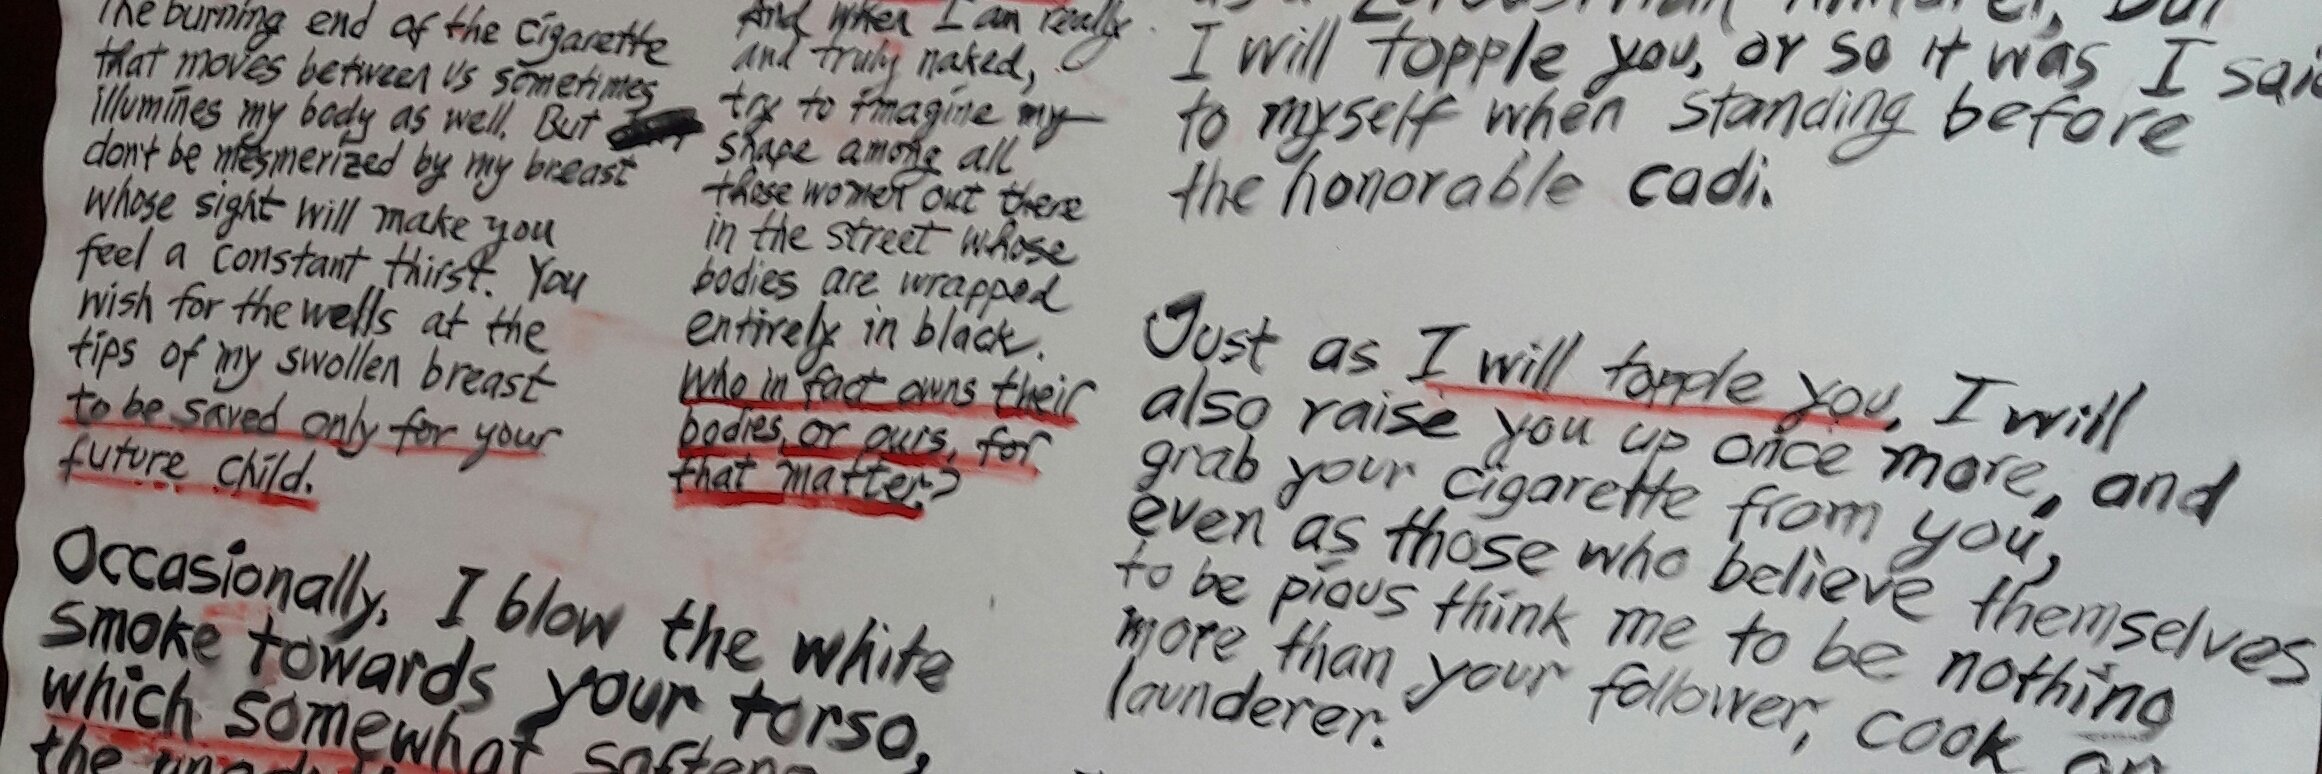 The burning end of the cigarette
that moves between us sometimes
illumines my body as well. But
don't be mesmerized by my breast
whose sight will make you
feel a constant thirst. You
wish for the wells at the
tips of my swollen breast
to be saved only for your
future child.
Occasionally, I blow the white
smoke towards your torso,
which somewhat softens
the
And when I am really
and truly naked,
try to imagine my
shape among all
those women out there
in the street whose
bodies are wrapped
entirely in black.
Who in fact owns their
bodies, or ours, for
that matter?
as a Zoroastrian But
I will topple you, or so it was I said
to myself when standing before
the honorable cadi.
Just as I will topple you, I will
also raise you up once more, and
grab your cigarette from you,
even as those who believe themselves
to be pious think me to be nothing
more than your follower, cook
launderer.